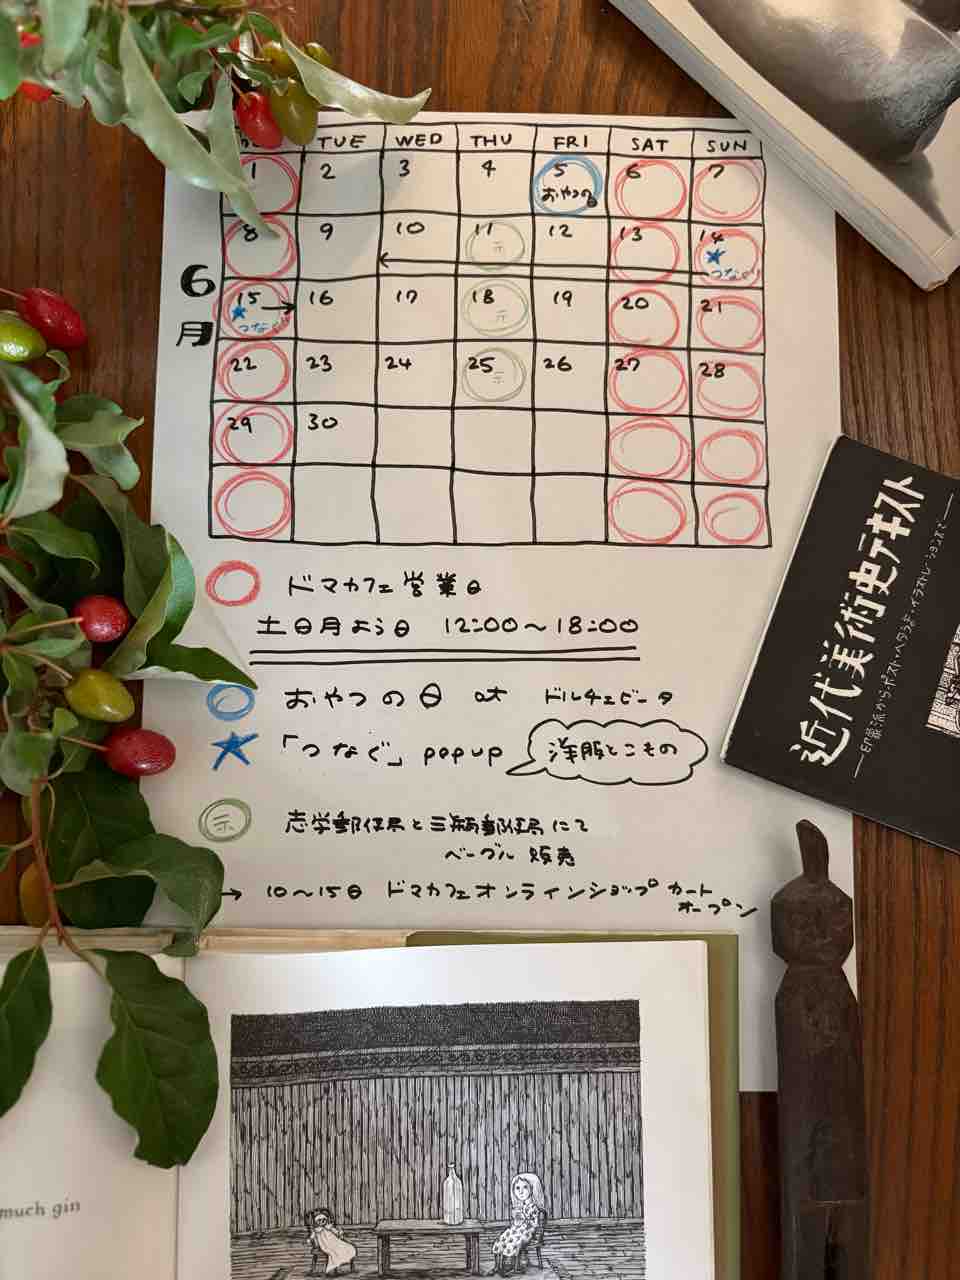 TUE WED THU FRI SAT SUN
1 2 3 4 5 6 7
おやつの日
8 9 10 11 12 13 14
示
つなぐ
6月
15 16 17 18 19 20 21
つなぐ
示
22 23 24 25 26 27 28
示
29 30
ドマカフェ営業日
土日月よう日 12:00〜18:00
おやつの日 at ドルチェビータ
「つなぐ」popup 洋服とこもの
示 志学郵便局と三瓶郵便局にて
ベーグル販売
→ 10〜15日 ドマカフェオンラインショップカート
オープン
近代美術史テキスト
—印象派からポスト・ヘタうま・イラストレーションまで—
much gin